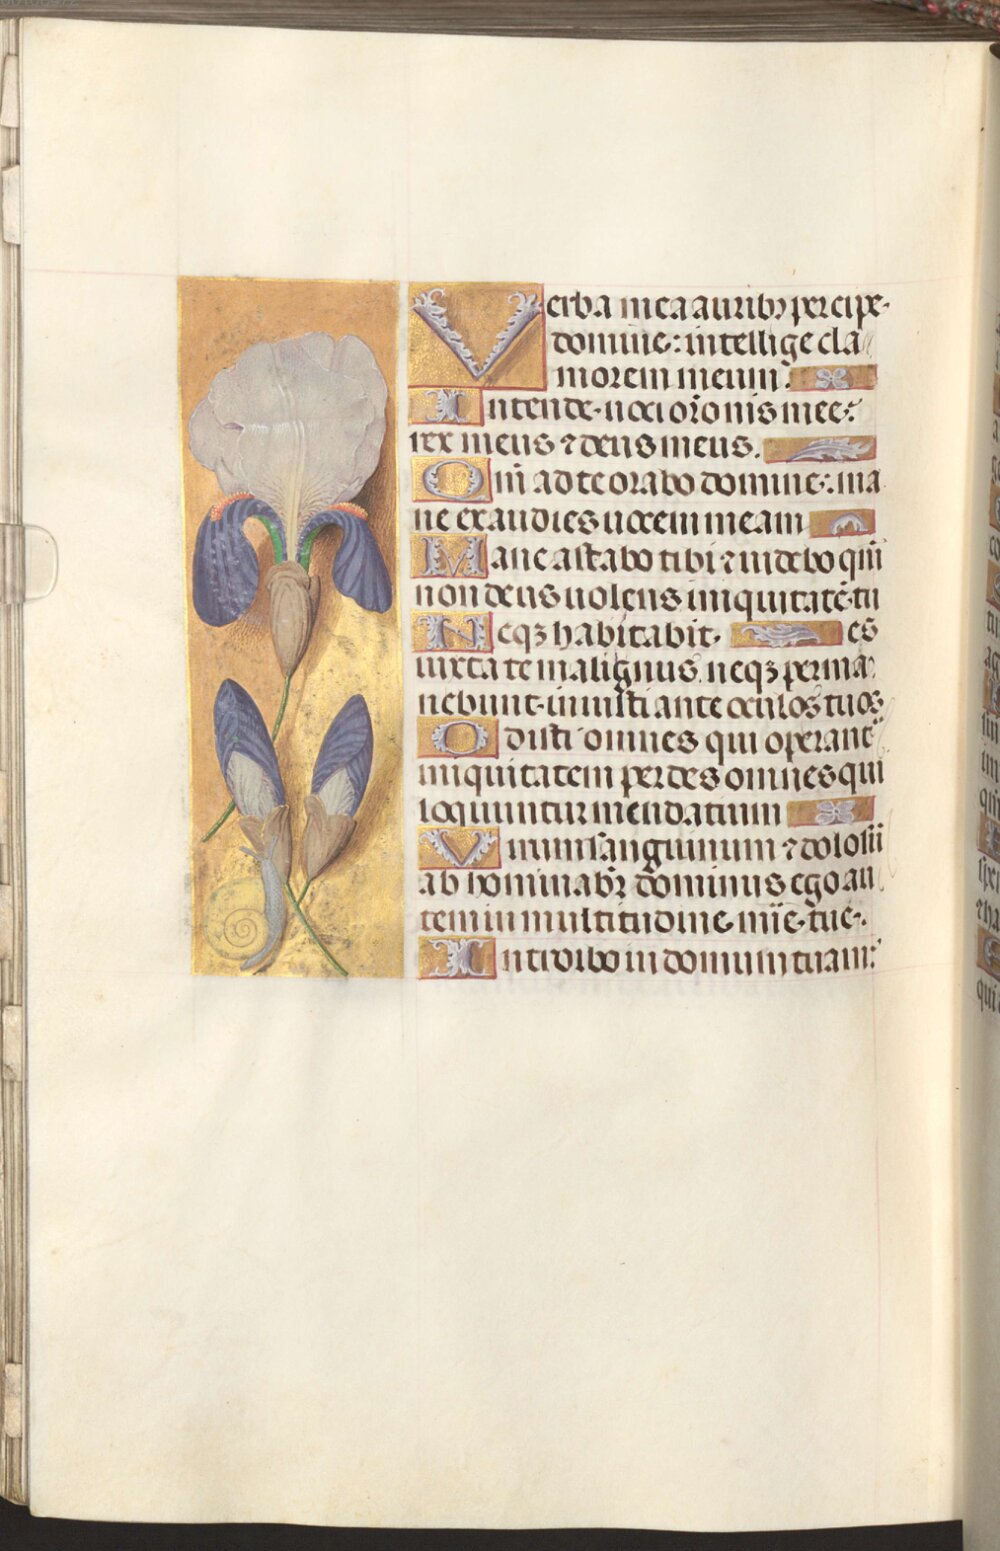 Verba mea auribꝫ percipe·
domine: intellige cla
morem meum.
Intende· uoci or̄onis mee:
rex meus ⁊ deus meus.
Qm̄ ad te orabo domine: ma
ne exaudies uocem meam
Mane astabo tibi ⁊ uidebo qm̄
non deus uolens iniquitatē· tu
Neqꝫ habitabit· es
iuxta te malignus neqꝫ perma
nebunt· iniusti ante oculos tuos
Odisti omnes qui operant᷑
iniquitatem perdes omnes qui
loquuntur mendatium
Uirum sanguinum ⁊ dolosū
abhominabr̄ dominus ego au
tem in multitudine mīe· tue·
Introibo in domum tuam: